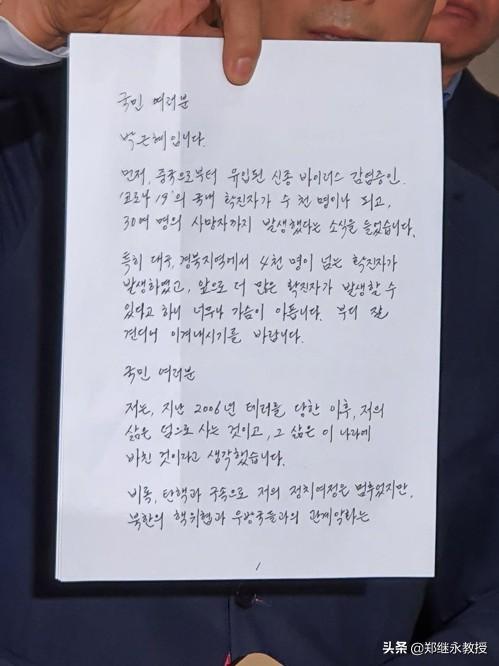 국민 여러분
박근혜입니다.
먼저, 중국으로부터 유입된 신종 바이러스 감염증인.
'코로나 19'의 국내 확진자가 수 천 명이나 되고,
30여 명의 사망자까지 발생했다는 소식을 들었습니다.
특히 대구, 경북지역에서 4천 명이 넘는 확진자가
발생하였고, 앞으로 더 많은 확진자가 발생할 수
있다고 하니 너무나 가슴이 아픕니다. 부디 잘
견디어 이겨내시기를 바랍니다.
국민 여러분
저는, 지난 2006년 테러를 당한 이후, 저의
삶은 덤으로 사는 것이고, 그 삶은 이 나라에
바친 것이라고 생각했습니다.
비록, 탄핵과 구속으로 저의 정치여정은 멈추었지만,
북한의 핵위협과 우방국들과의 관계악화는
1
头条 @郑继永教授